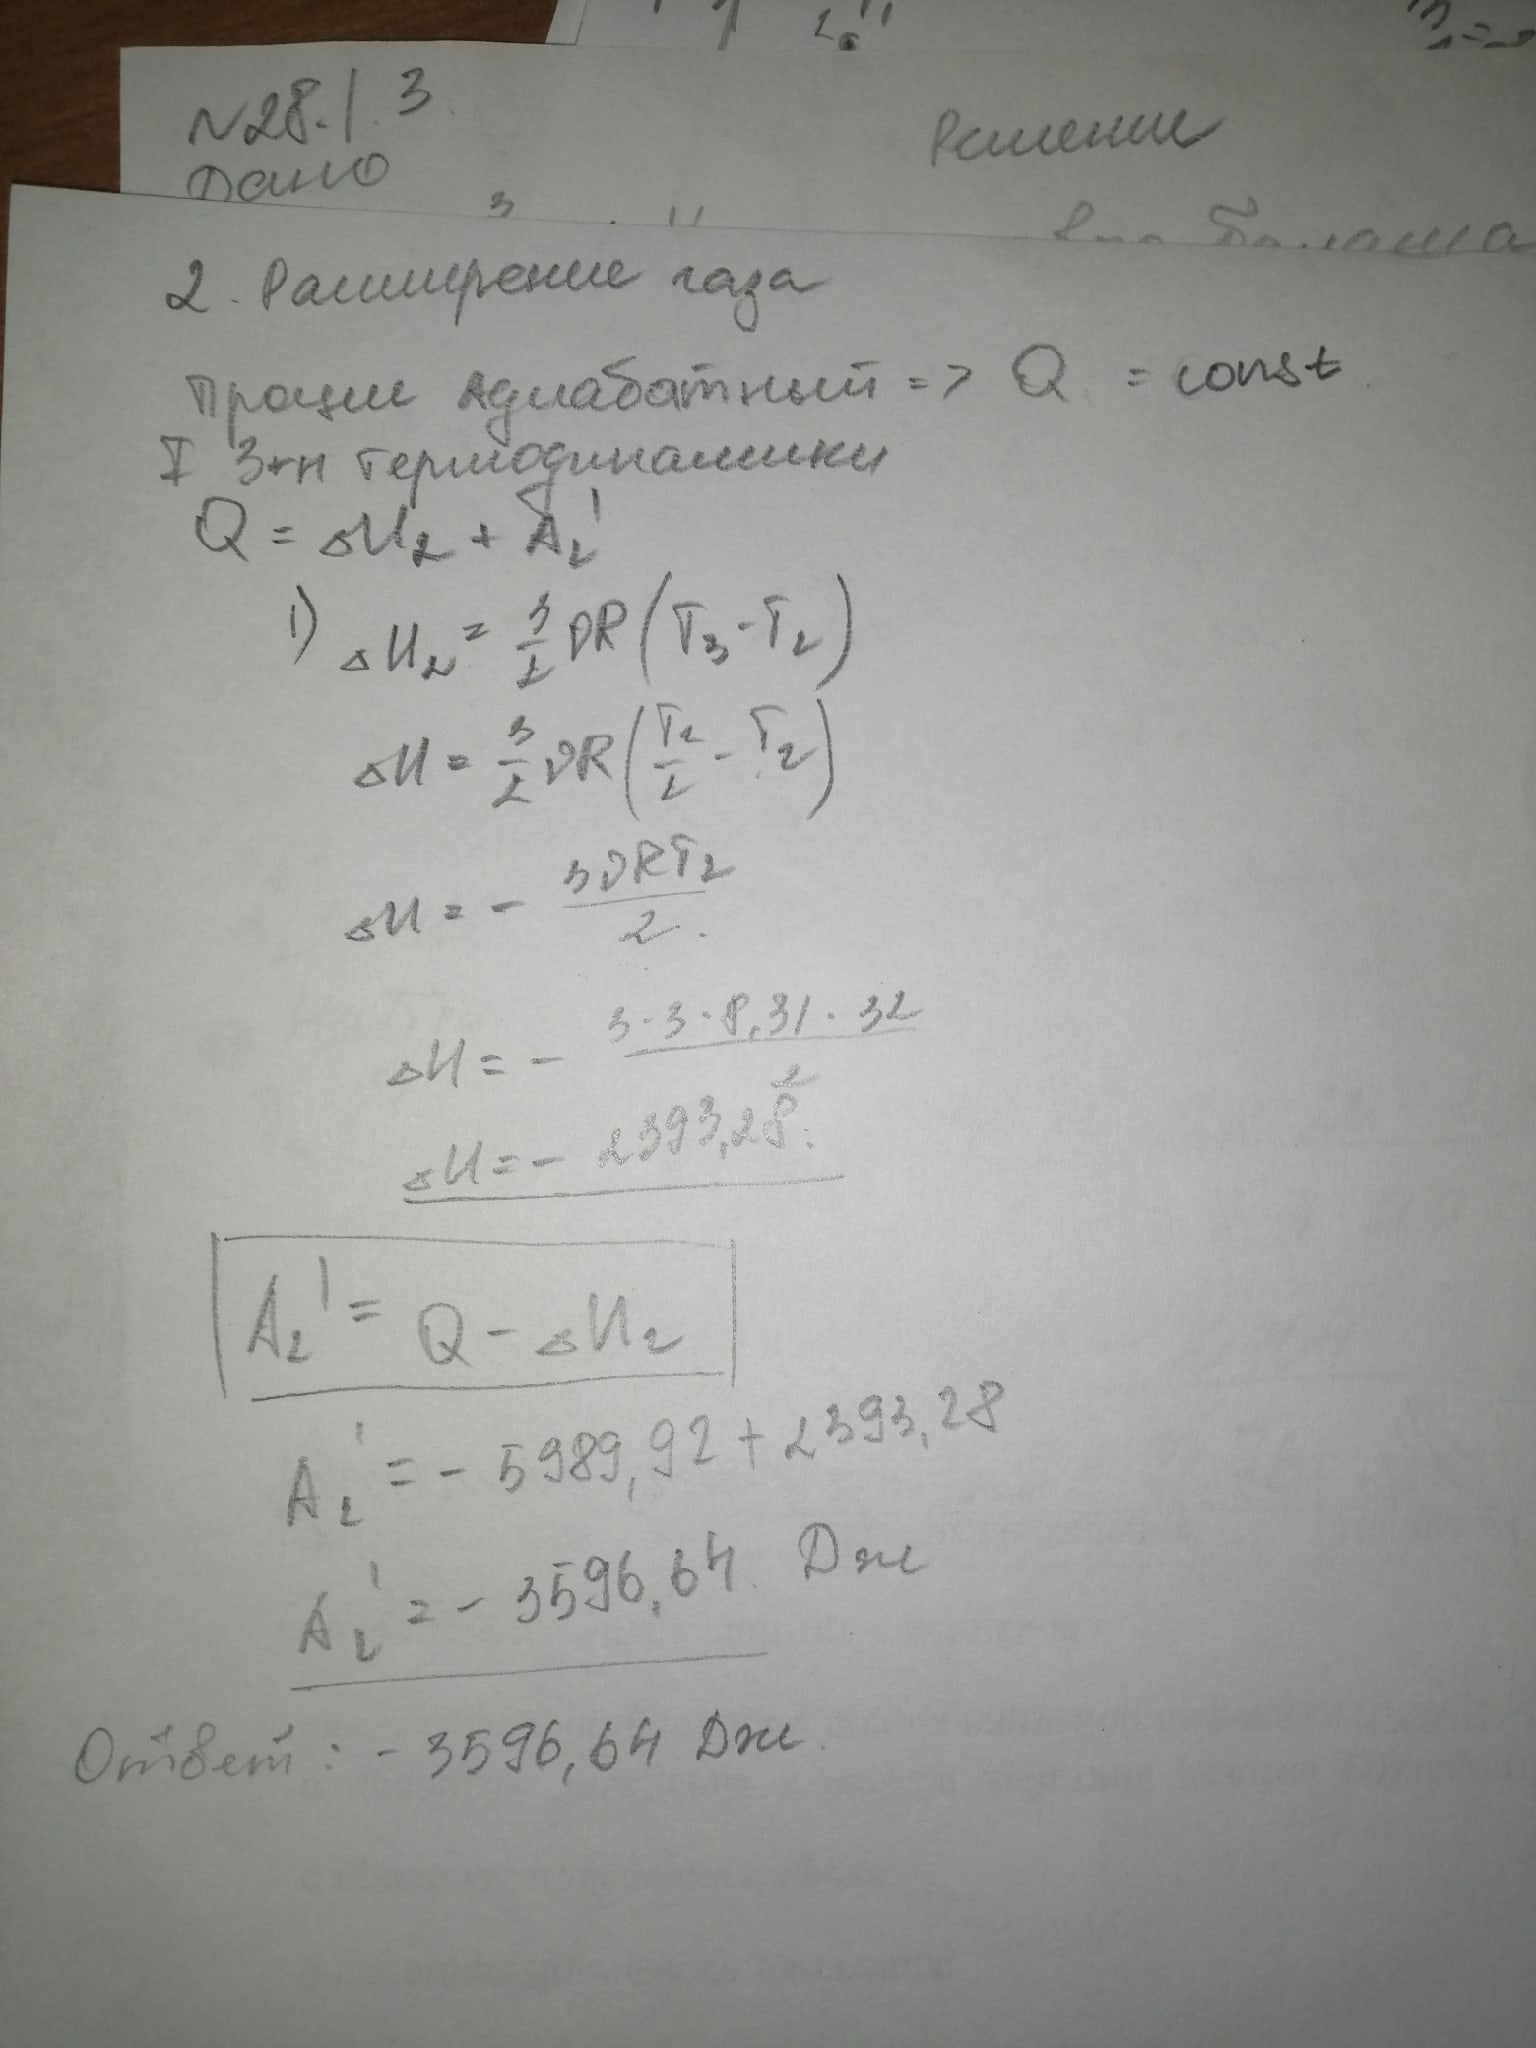 N28.1.3.
Решение
Дано
2. Расширение газа
Процесс Адиабатный => Q = const.
I З-н термодинамики
Q = ΔU₂ + A₂'
1) ΔU₂ = 3/2 νR (T₃ - T₂)
ΔU = 3/2 νR (T₂/2 - T₂)
ΔU = - 3νRT₂/2.
ΔU = - 3·3·8,31·32/2
ΔU = - 2393,28.
A₂' = Q - ΔU₂
A₂' = - 5989,92 + 2393,28
A₂' = - 3596,64. Дж
Ответ: - 3596,64 Дж.